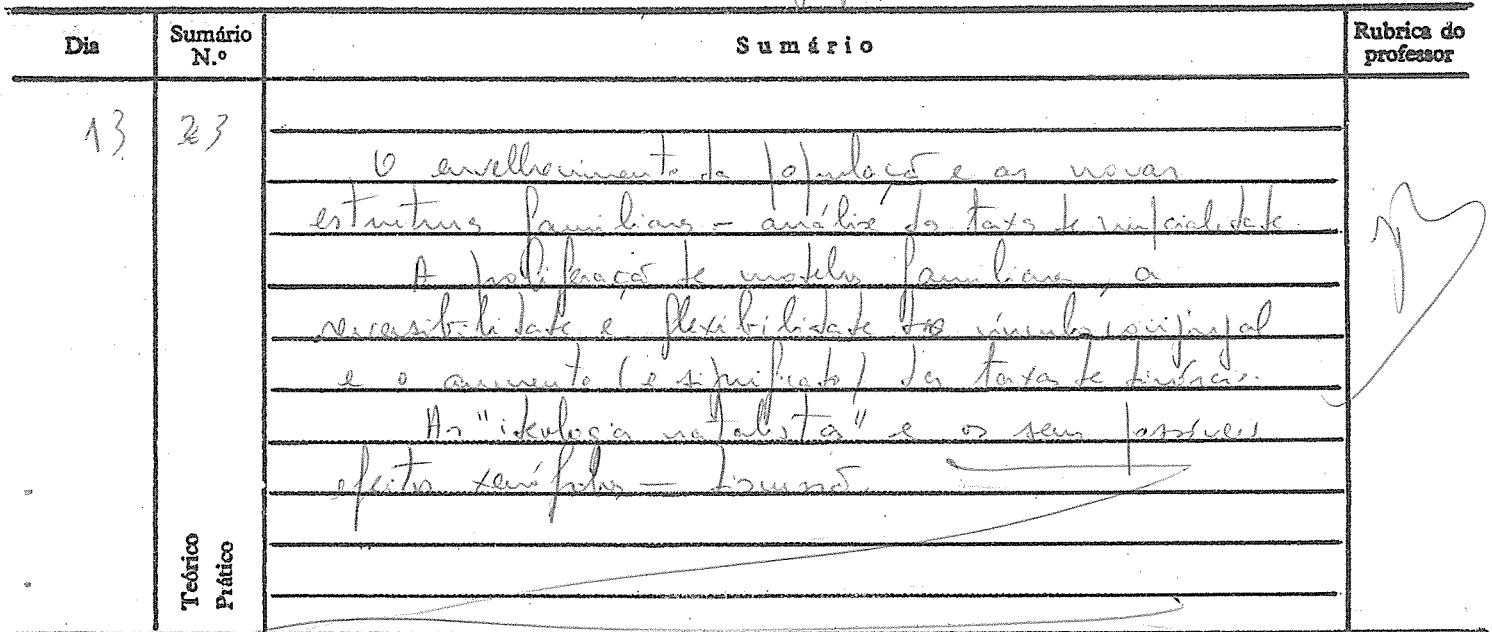 Dia Sumário N.º Sumário Rubrica do professor
13 23
O envelhecimento da população e as novas
estruturas familiares - análise da taxa de nupcialidade.
A proliferação de modelos familiares, a
e flexibilidade do vínculo conjugal
e o aumento (e significado) das taxas de divórcio.
As "ideologias natalistas" e os seus possíveis
efeitos xenófobos — discussão.
Teórico
Prático